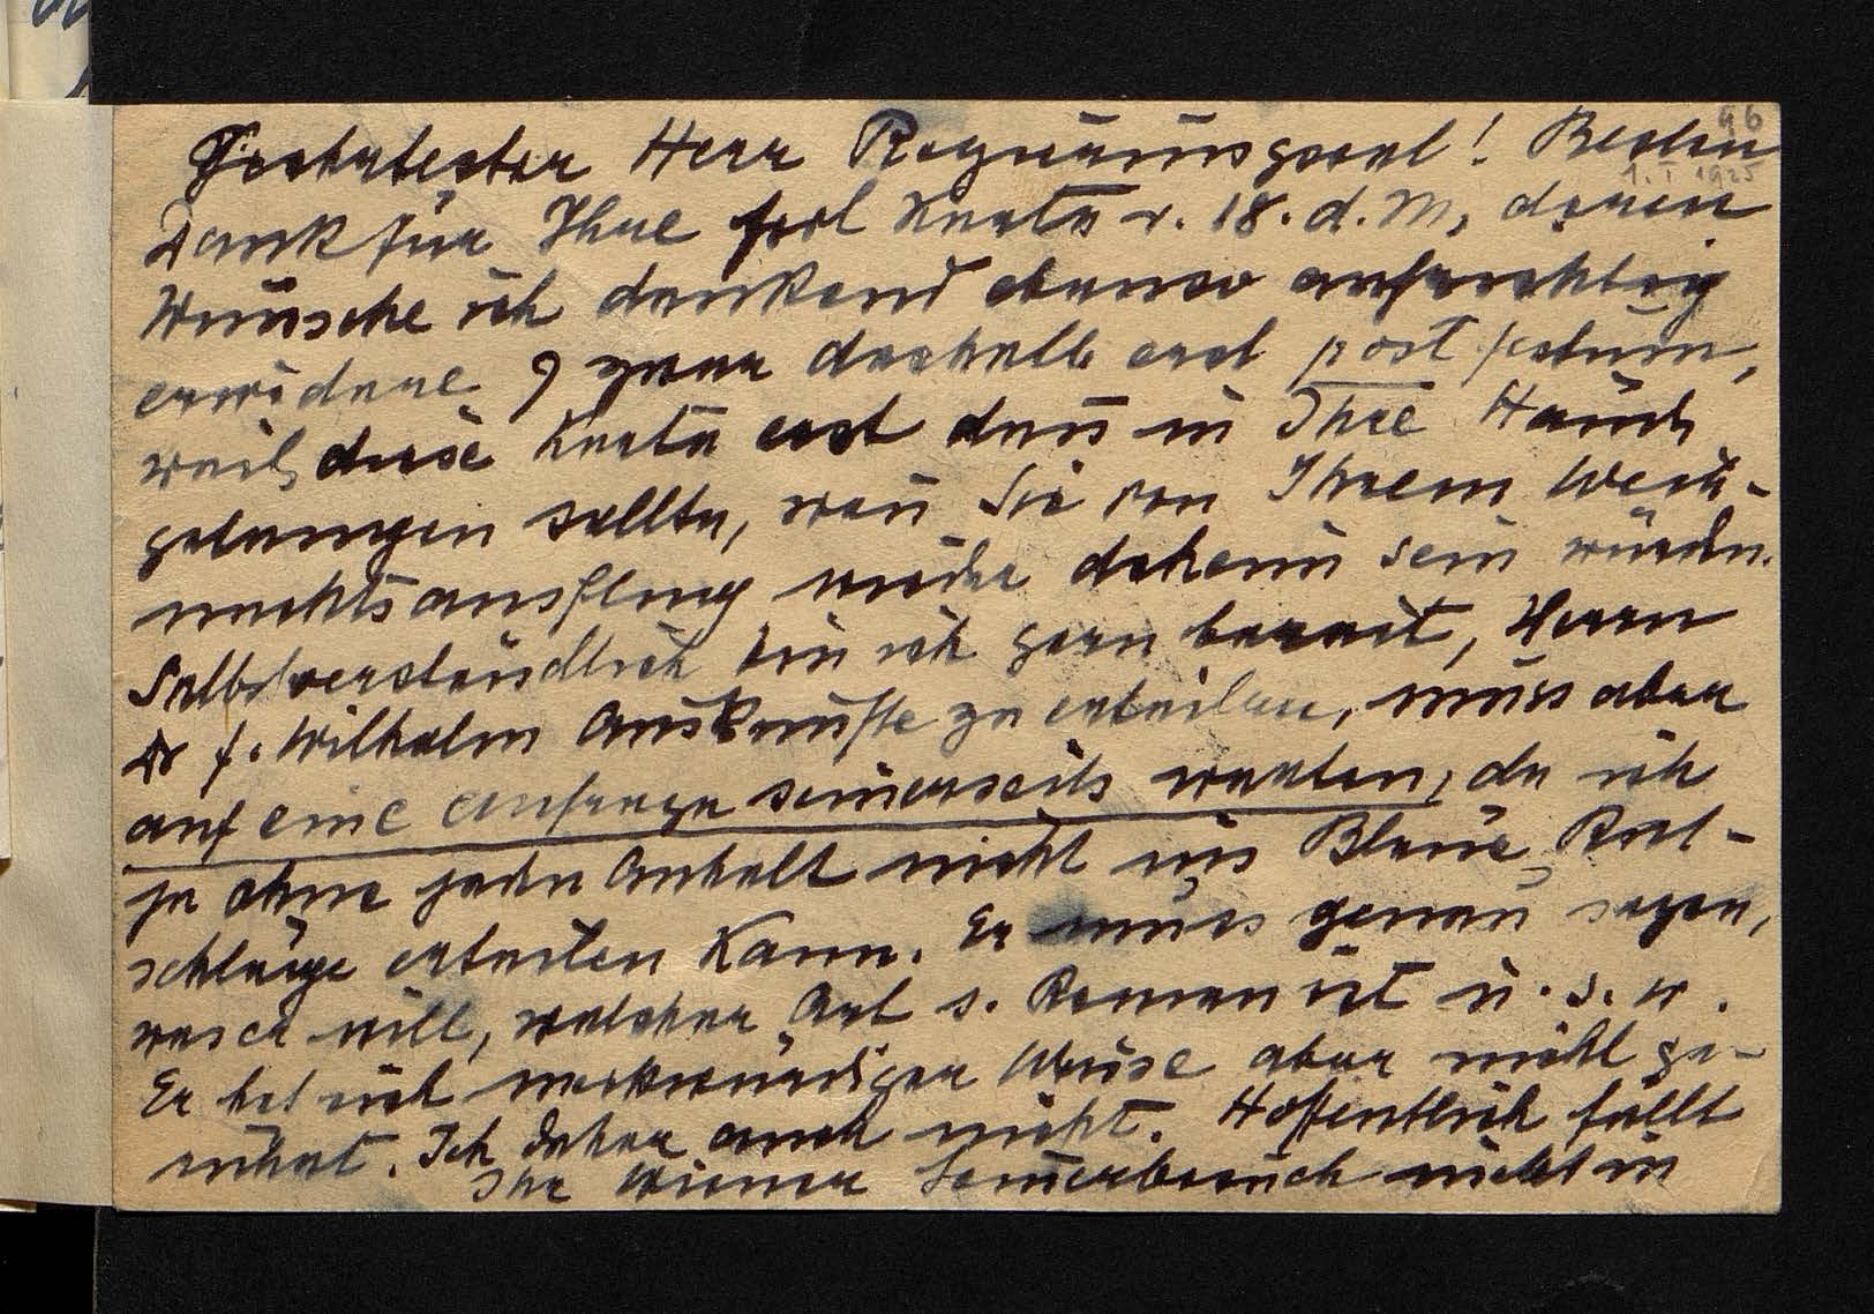 96
Geehrtester Herr Regierungsrat! Berlin
1. I 1925
Dank für Ihre frdl Karte v. 18. d. M, deren
Wünsche ich dankend ebenso aufrichtig
erwidere zwar deshalb erst post festum,
weil diese Karte erst dann in Ihre Hände
gelangen sollte, wen̄ Sie von Ihrem Weih-
nachtsausflug wieder daheim sein würden.
Selbstverständlich bin ich gern bereit, Herrn
Dr f. Wilhelm Auskünfte zu erteilen, muss aber
auf eine Anfrage seinerseits warten, da ich
ja ohne jeden Anhalt nicht ins Blaue Rat-
schläge erteilen kann. Er muss genau sagen,
was er will, welcher Art s. Roman ist u. s. w.
Er hat sich merkwürdiger Weise aber nicht ge-
rührt. Ich daher auch nicht. Hoffentlich fällt
Ihr Wiener Som̄erbesuch nicht in